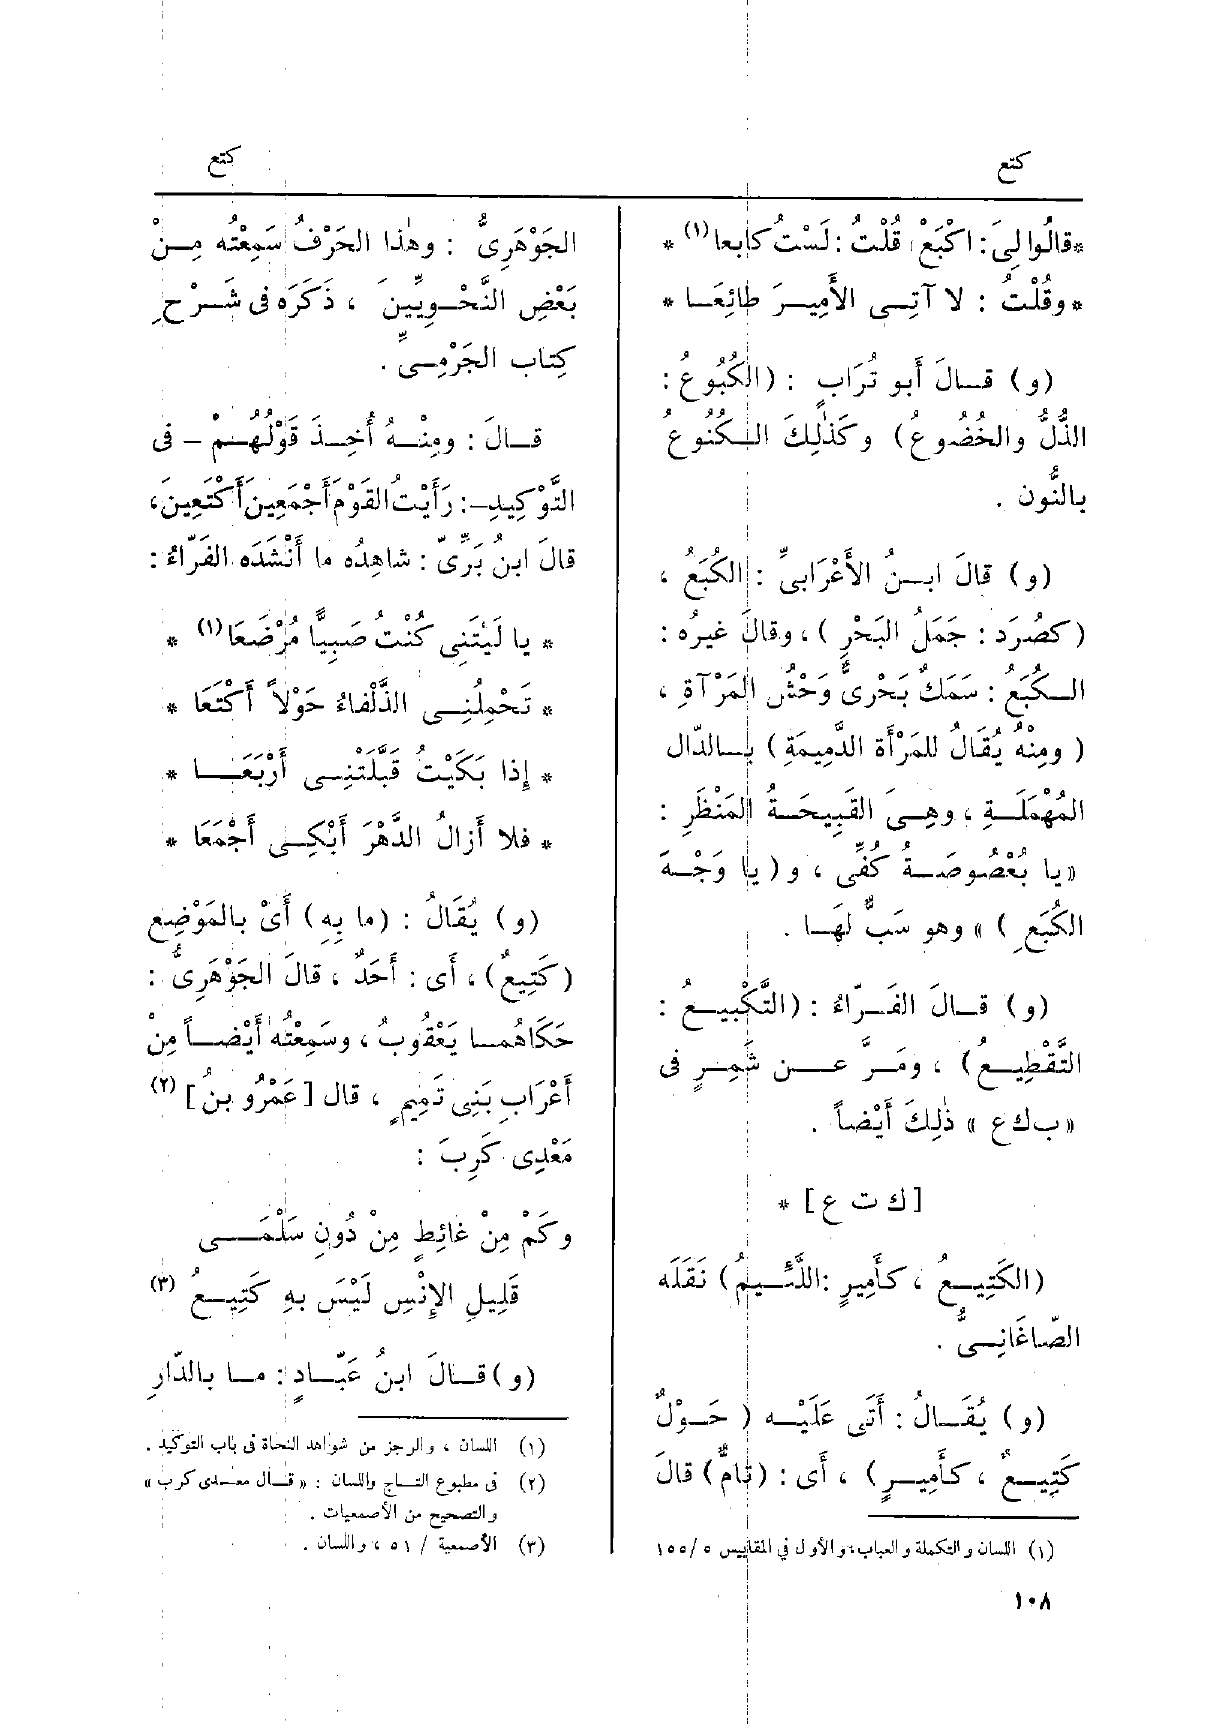 كتع
كتع
*قالُوا لِىَ: اكْبَعْ قُلْتُ: لَسْتُ كابعا(١) *
*وقُلْتُ : لا آتِى الأَمِيرَ طائِعَا *
(و) قالَ أَبو تُرَابٍ : (الكُبُوعُ :
الذُّلُّ والخُضُوعُ) وكَذٰلِكَ الكُنُوعُ
بالنُّون .
(و) قالَ ابنُ الأَعْرَابىِّ : الكُبَعُ ،
(كصُرَد : جَمَلُ البَحْرِ) ، وقالَ غيرُه :
الكُبَعُ : سَمَكٌ بَحْرِىٌّ وَحْشُ المَرْآةِ ،
(ومِنْهُ يُقَالُ للمَرْأَة الدَّمِيمَةِ) بالدّال
المُهْمَلَةِ ، وهِىَ القَبِيحَةُ المَنْظَرِ :
«يا بُعْصُوصَةُ كُفِّى ، و(يا وَجْهَ
الكُبَعِ) » وهو سَبٌّ لهَا .
(و) قالَ الفَرّاءُ : (التَّكْبِيعُ :
التَّقْطِيعُ) ، ومَرَّ عن شَمِرٍ فى
«ب ك ع» ذٰلِكَ أَيْضاً .
[ك ت ع] *
(الكَتِيعُ ، كأَمِيرٍ :اللَّئِيمُ) نَقَلَه
الصّاغَانِىُّ .
(و) يُقَالُ : أَتَى عَلَيْه (حَوْلٌ
كَتِيعٌ ، كأَمِيرٍ) ، أَى : (تَامٌّ) قالَ
(١) اللسان والتكملة والعباب، والأول في المقاييس ١٥٥/٥
١٠٨
الجَوْهَرِىُّ : وهٰذا الحَرْفُ سَمِعْتُه مِنْ
بَعْضِ النَّحْوِيِّينَ ، ذَكَرَه فى شَرْحِ
كِتاب الجَرْمِىِّ .
قالَ : ومِنْهُ أُخِذَ قَوْلُهُمْ – فى
التَّوْكِيدِ-: رَأَيْتُ القَوْمَ أَجْمَعِينَ أَكْتَعِينَ،
قالَ ابنُ بَرِّىّ : شاهِدُه ما أَنْشَدَه الفَرّاءُ :
* يا لَيْتَنِى كُنْتُ صَبِيًّا مُرْضَعَا(١) *
* تَحْمِلُنِى الذَّلْفَاءُ حَوْلاً أَكْتَعَا *
* إِذا بَكَيْتُ قَبَّلَتْنِى أَرْبَعَا *
* فلا أَزالُ الدَّهْرَ أَبْكِى أَجْمَعَا *
(و) يُقَالُ : (ما بِهِ) أَىْ بالمَوْضِعِ
(كَتِيعٌ) ، أَى : أَحَدٌ ، قالَ الجَوْهَرِىُّ :
حَكَاهُما يَعْقُوبُ ، وسَمِعْتُه أَيْضاً مِنْ
أَعْرَابِ بَنِى تَمِيمٍ ، قال [عَمْرُو بنُ] (٢)
مَعْدِى كَرِبَ :
وكَمْ مِنْ غائِطٍ مِنْ دُونِ سَلْمَى
قَلِيلِ الإِنْسِ لَيْسَ بهِ كَتِيعُ (٣)
(و)قالَ ابنُ عَبّادٍ : ما بالدّارِ
(١) اللسان ، والرجز من شواهد النحاة فى باب التوكيد .
(٢) فى مطبوع التاج واللسان : «قال معدى كرب»
والتصحيح من الأصمعيات .
(٣) الأصمعية / ٥١ ، واللسان .